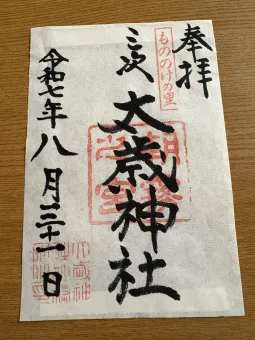 奉拝
もののけの里
三次
太歳神社
令和七年八月三十一日